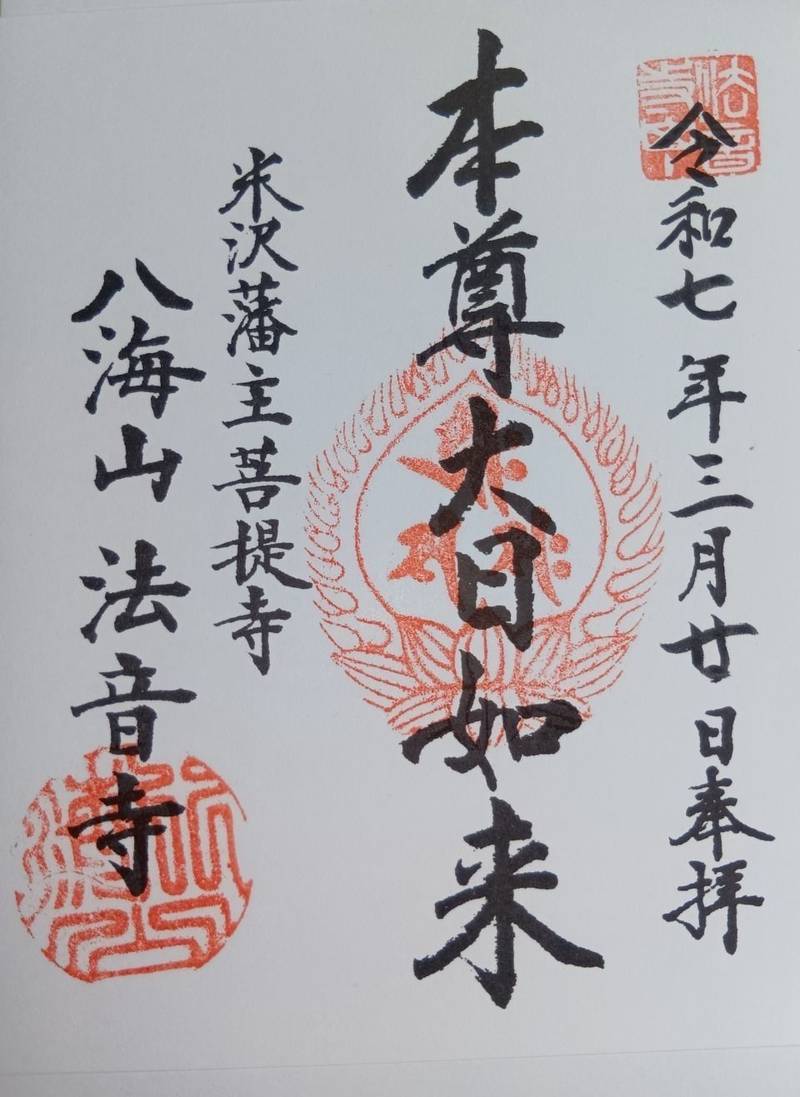 令和七年三月廿日奉拝
本尊大日如来
米沢藩主菩提寺
八海山法音寺